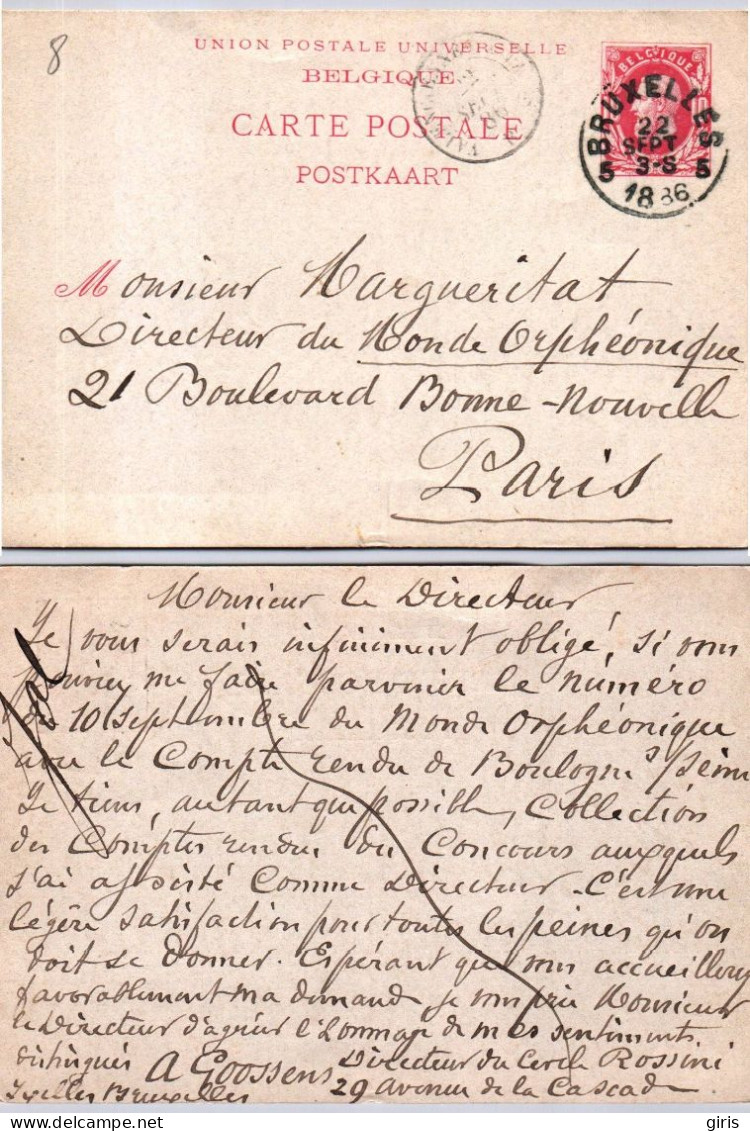 8
UNION POSTALE UNIVERSELLE
BELGIQUE
CARTE POSTALE
POSTKAART
BELGIQUE
BRUXELLES
22
SEPT
5 3-S 5
1886
Monsieur Margueritat
Directeur du Monde Orphéonique
21 Boulevard Bonne-Nouvelle
Paris
Monsieur le Directeur
Je vous serais infiniment obligé, si vous
pouviez me faire parvenir le numéro
du 10 septembre du Monde Orphéonique
avec le Compte rendu de Boulogne s/Seine
Je tiens, autant que possible, Collection
des Comptes rendus du Concours auxquels
j'ai assisté comme Directeur. C'est une
légère satisfaction pour toutes les peines qu'on
doit se donner. Espérant que vous accueillerez
favorablement ma demande je vous prie Monsieur
le Directeur d'agréer l'hommage de mes sentiments
distingués A Goossens Directeur du Cercle Rossini
Ixelles Bruxelles 29 avenue de la Cascade
delcampe.net
giris